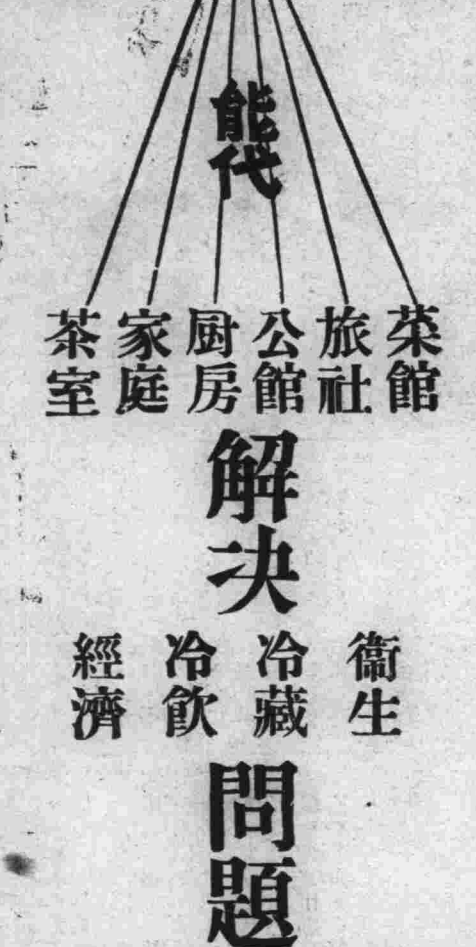 能代
菜館
旅社
公館
厨房
家庭
茶室
解决
衞生
冷藏
冷飲
經濟
問題